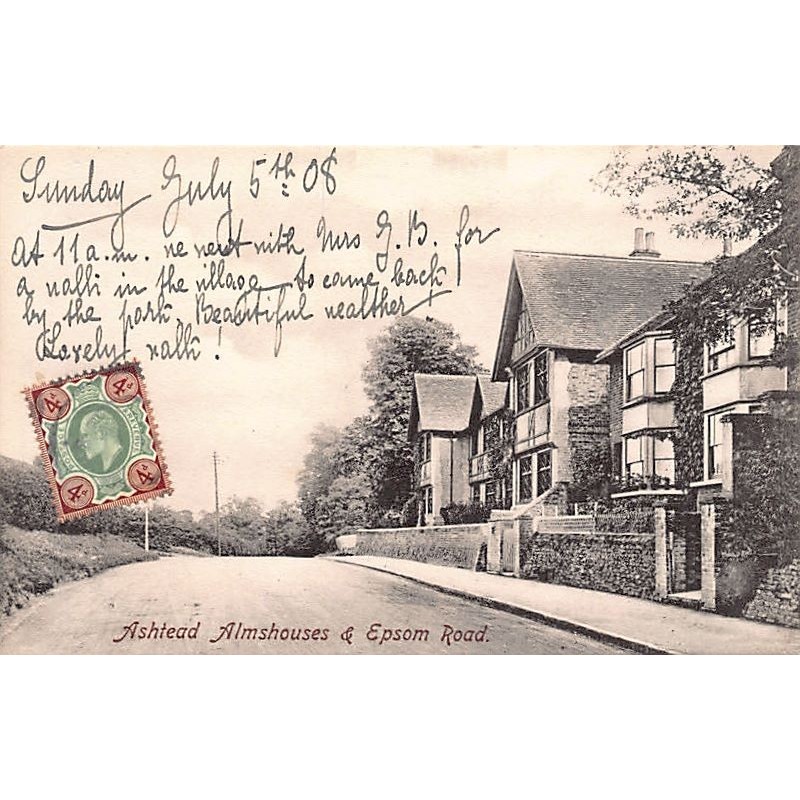 Sunday July 5th: 08
At 11 a.m. we went with Mrs G. B. for
a walk in the village to come back
by the park. Beautiful wealther
Lovely walk!
4d 4d
POSTAGE REVENUE
4d 4d
Ashtead Almshouses & Epsom Road.